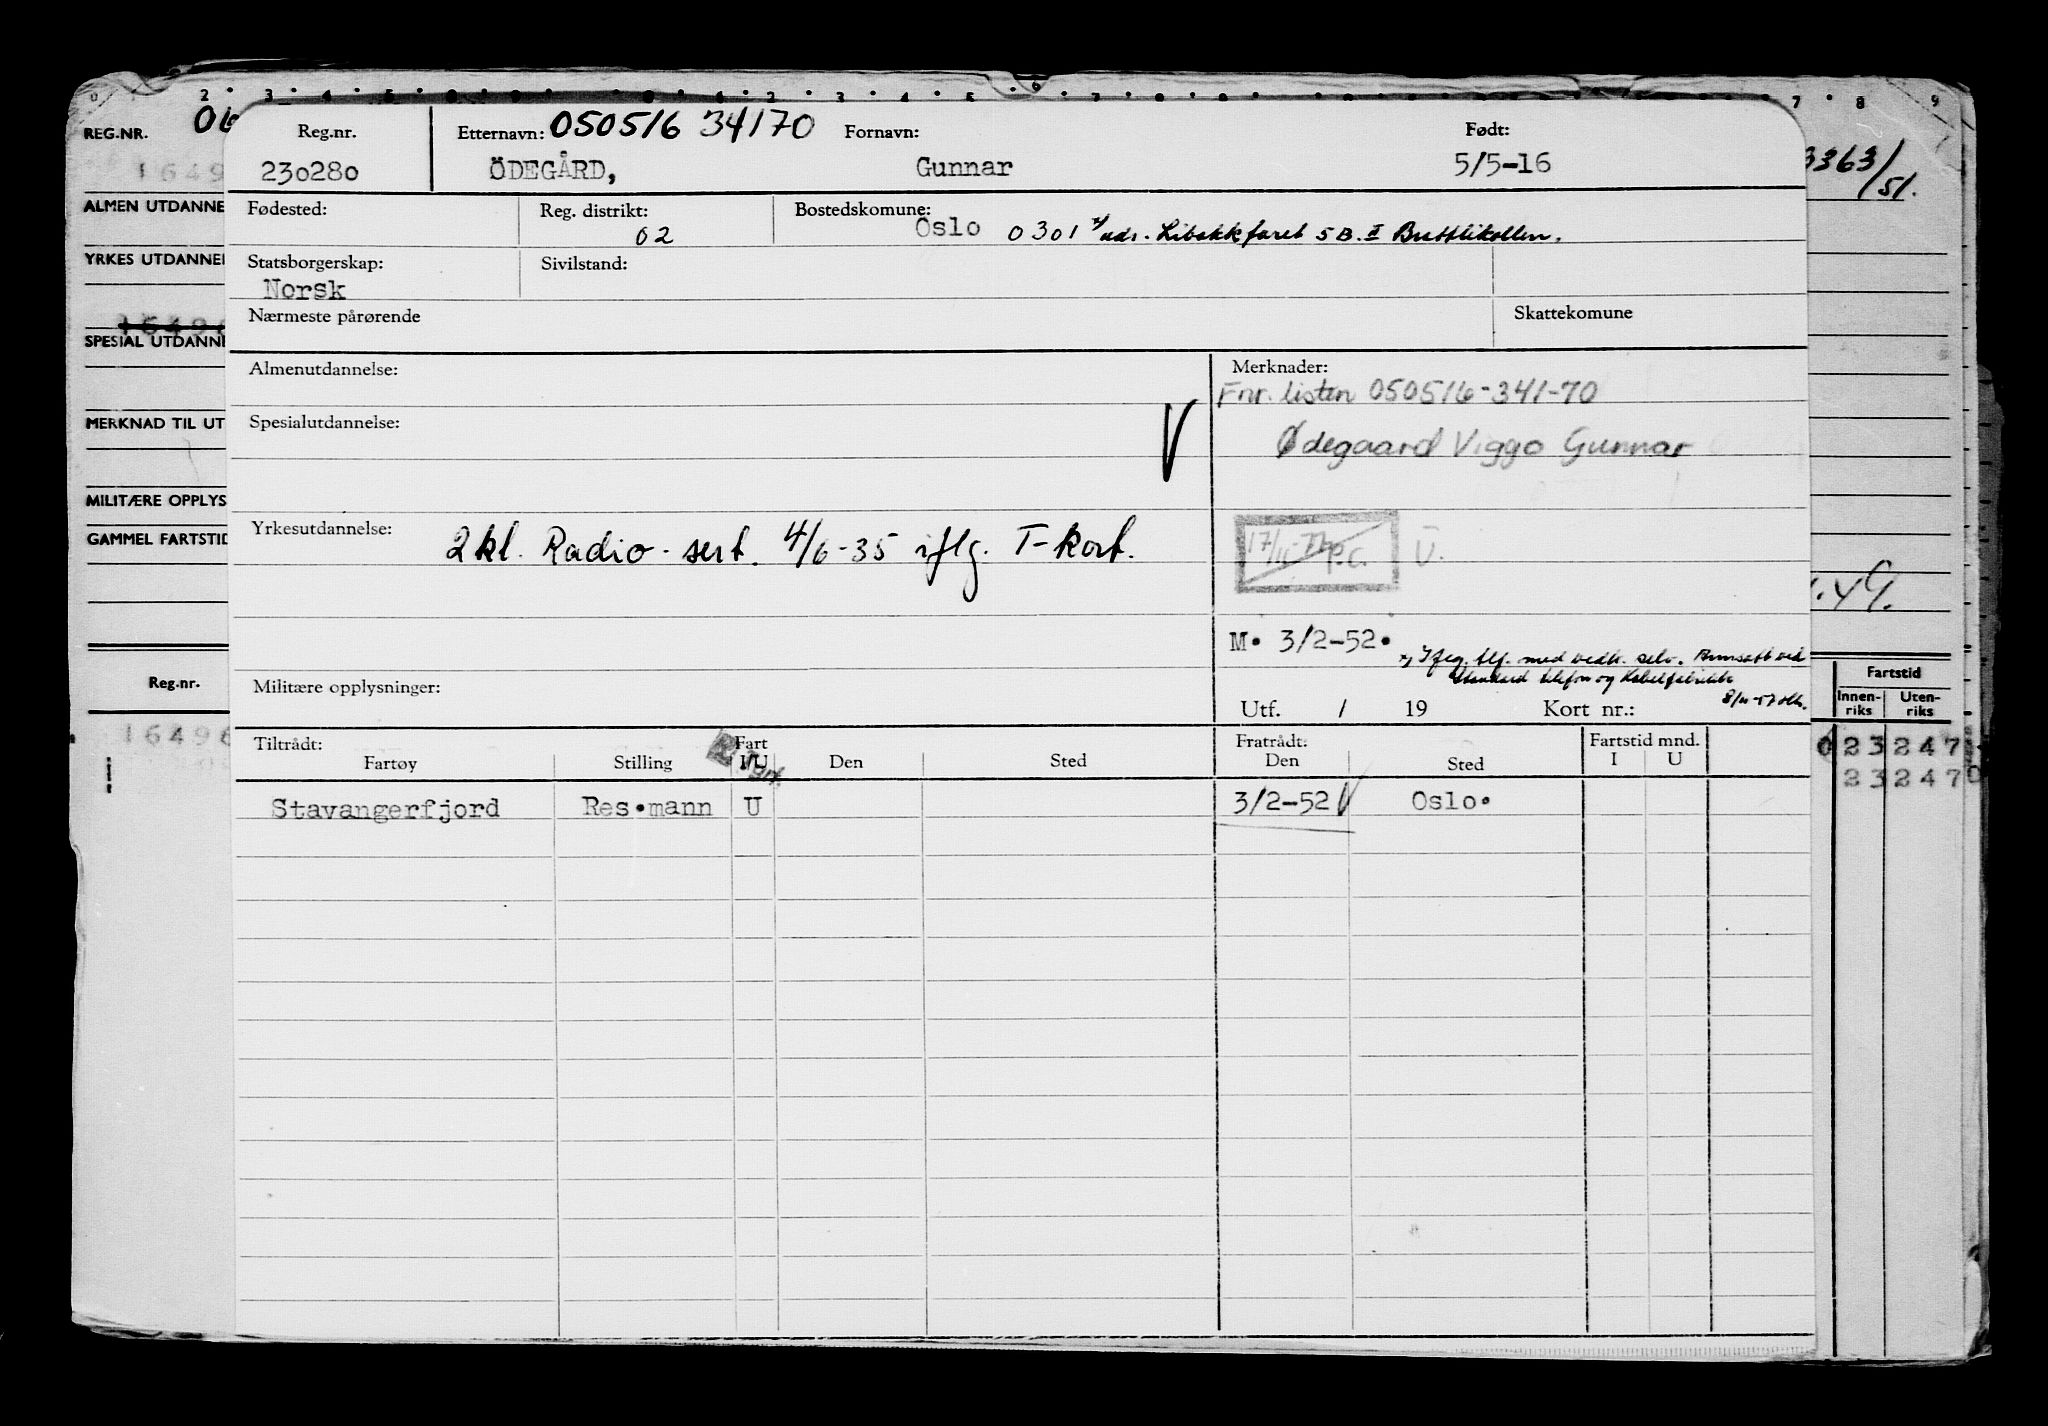 REG.NR. 06
1649
ALMEN UTDANNE
YRKES UTDANNE
1649
SPESIAL UTDANN
MERKNAD TIL UT
MILITÆRE OPPLYS
GAMMEL FARTSTID
Reg.nr.
16496
Reg.nr. Etternavn: 050516 34170 Fornavn: Født:
230280 ÖDEGÅRD, Gunnar 5/5-16
3363/51.
Fødested: Reg. distrikt: Bostedskomune:
02 Oslo 0301 adr. 5B. II
Statsborgerskap: Sivilstand:
Norsk
Nærmeste pårørende Skattekomune
Almenutdannelse: Merknader:
Fnr. listen 050516-341-70
Spesialutdannelse: V
Ødegaard Viggo Gunnar
Yrkesutdannelse: 2 kl. Radio-sert. 4/6-35 iflg. T-kort.
17/11 U.
49.
M. 3/2-52.
med vedk. selv. Ansatt ved
Standard telefon og Kabelfabrikk
Militære opplysninger:
Utf. / 19 Kort nr.:
Fartstid
Innen-riks Uten-riks
Tiltrådt: Fart Fratrådt: Fartstid mnd.
Fartøy Stilling I/U Den Sted Den Sted I U
Stavangerfjord Res.mann U 3/2-52 V Oslo.
023247
232470